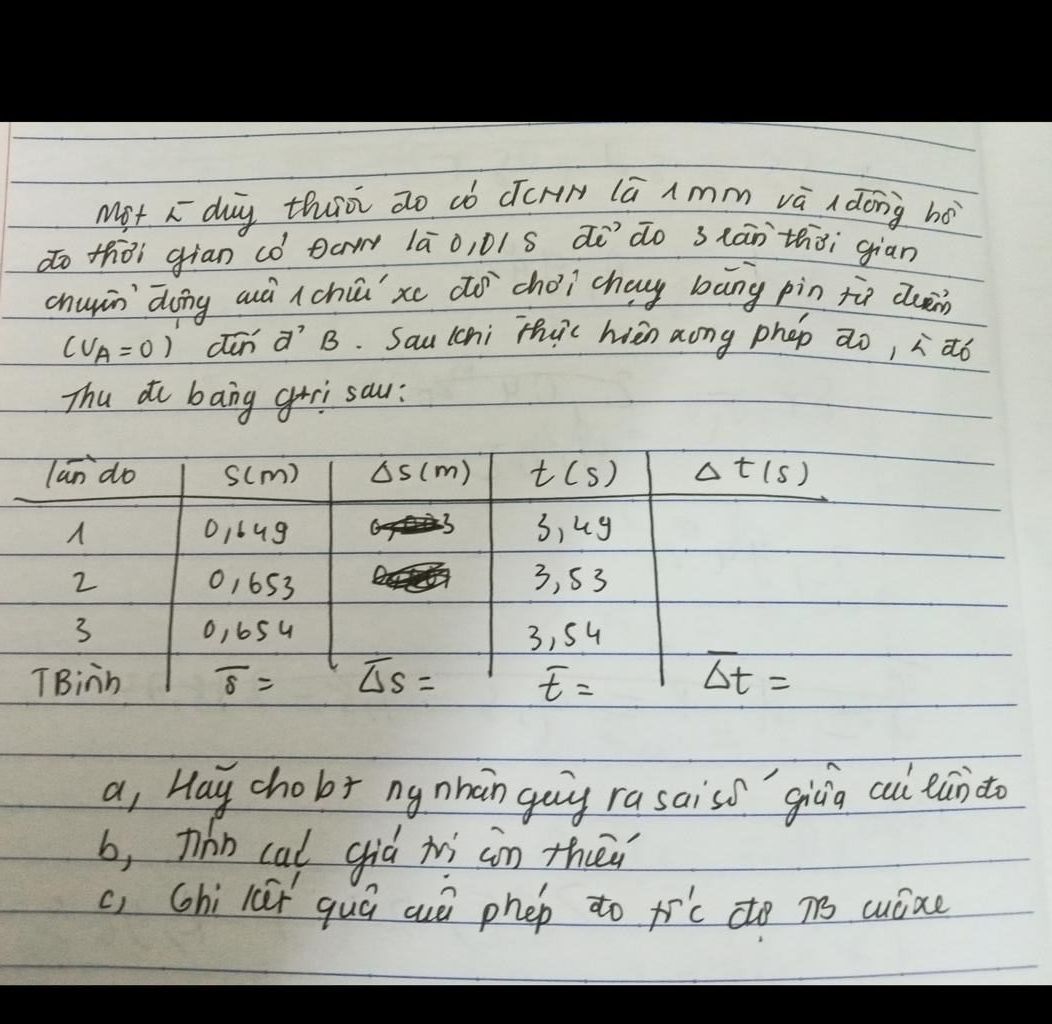 Một dùng thước đo có ĐCNN là 1mm và 1 đồng hồ
đo thời gian có ĐCNN là 0,01 s để đo 3 lần thời gian
chuyển động của 1 chiếc xe đồ chơi chạy bằng pin từ
(VA = 0) đến đ' B. Sau khi thực hiện xong phép đo, đó
Thu đc bảng gtrị sau:
lần đo S(m) Δs(m) t(s) Δt(s)
1 0,649 3,49
2 0,653 3,53
3 0,654 3,54
TBình s̄ = Δ̄s = t̄ = Δ̄t =
a, Hãy cho bt ng nhân gây ra sai số giữa các lần đo
b, Tính các giá trị còn thiếu
c, Ghi kết quả của phép đo tốc độ TB của xe